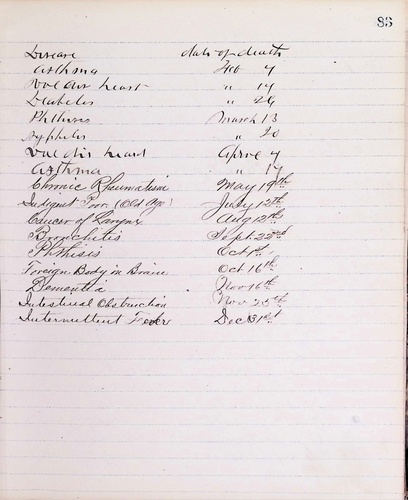 83
Disease date of death
Asthma Feb 4
Val dis heart " 14
Diabetes " 24
Phthisis March 13
Syphilis " 20
Val dis heart April 4
Asthma " 17
Chronic Rheumatism May 19th
Indigent Poor (Old Age) July 12th
Cancer of Larynx Aug 12th
Bronchitis Sept 22nd
Phthisis Oct 1st
Foreign Body in Brain Oct 16th
Dementia Nov 16th
Intestinal Obstruction Nov 25th
Intermittent Fever Dec 31st